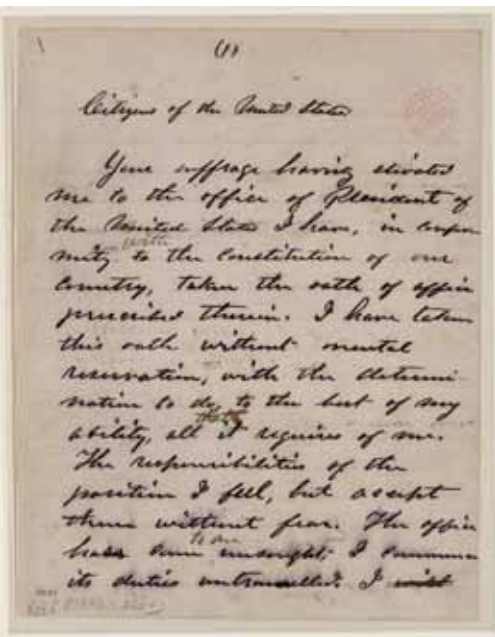 (1)
Citizens of the United States
Your suffrage having elevated
me to the office of President of
the United States I have, in confor
with
mity to the Constitution of our
Country, taken the oath of office
prescribed therein. I have taken
this oath without mental
reservation, with the determi-
nation to do, to the best of my
ability, all it requires of me.
The responsibilities of the
position I feel, but accept
them without fear. The office
to me
has come unsought; I commence
its duties untrammeled. I